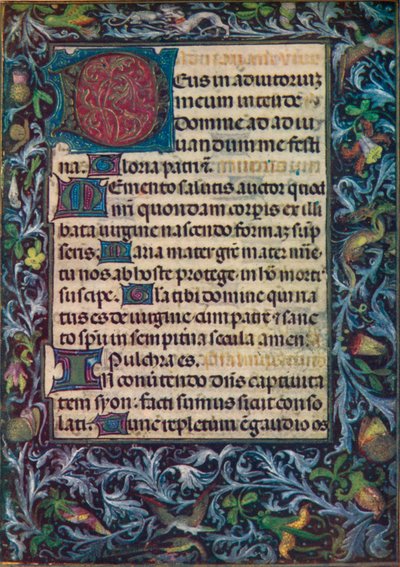 Deus in adiutorium
meum intende
Domine ad adiu
uandum me festi
na. Gloria patri ⁊.
Memento salutis auctor quod
nr̄i quondam corp̄is ex illi
bata uirgine nascendo formaȝ sūp
seris. Maria mater gr̄e mater mīe
tu nos ab hoste protege in hōr morti
suscipe. Gl̄a tibi domine qui na
tus es de uirgine cum patre ⁊ sanc
to sp̄u in sempit̄na secula amen
Pulchra es.
In conuertendo dn̄s captiuita
tem syon: facti sumus sicut conso
lati. Tunc repletum ē gaudio os